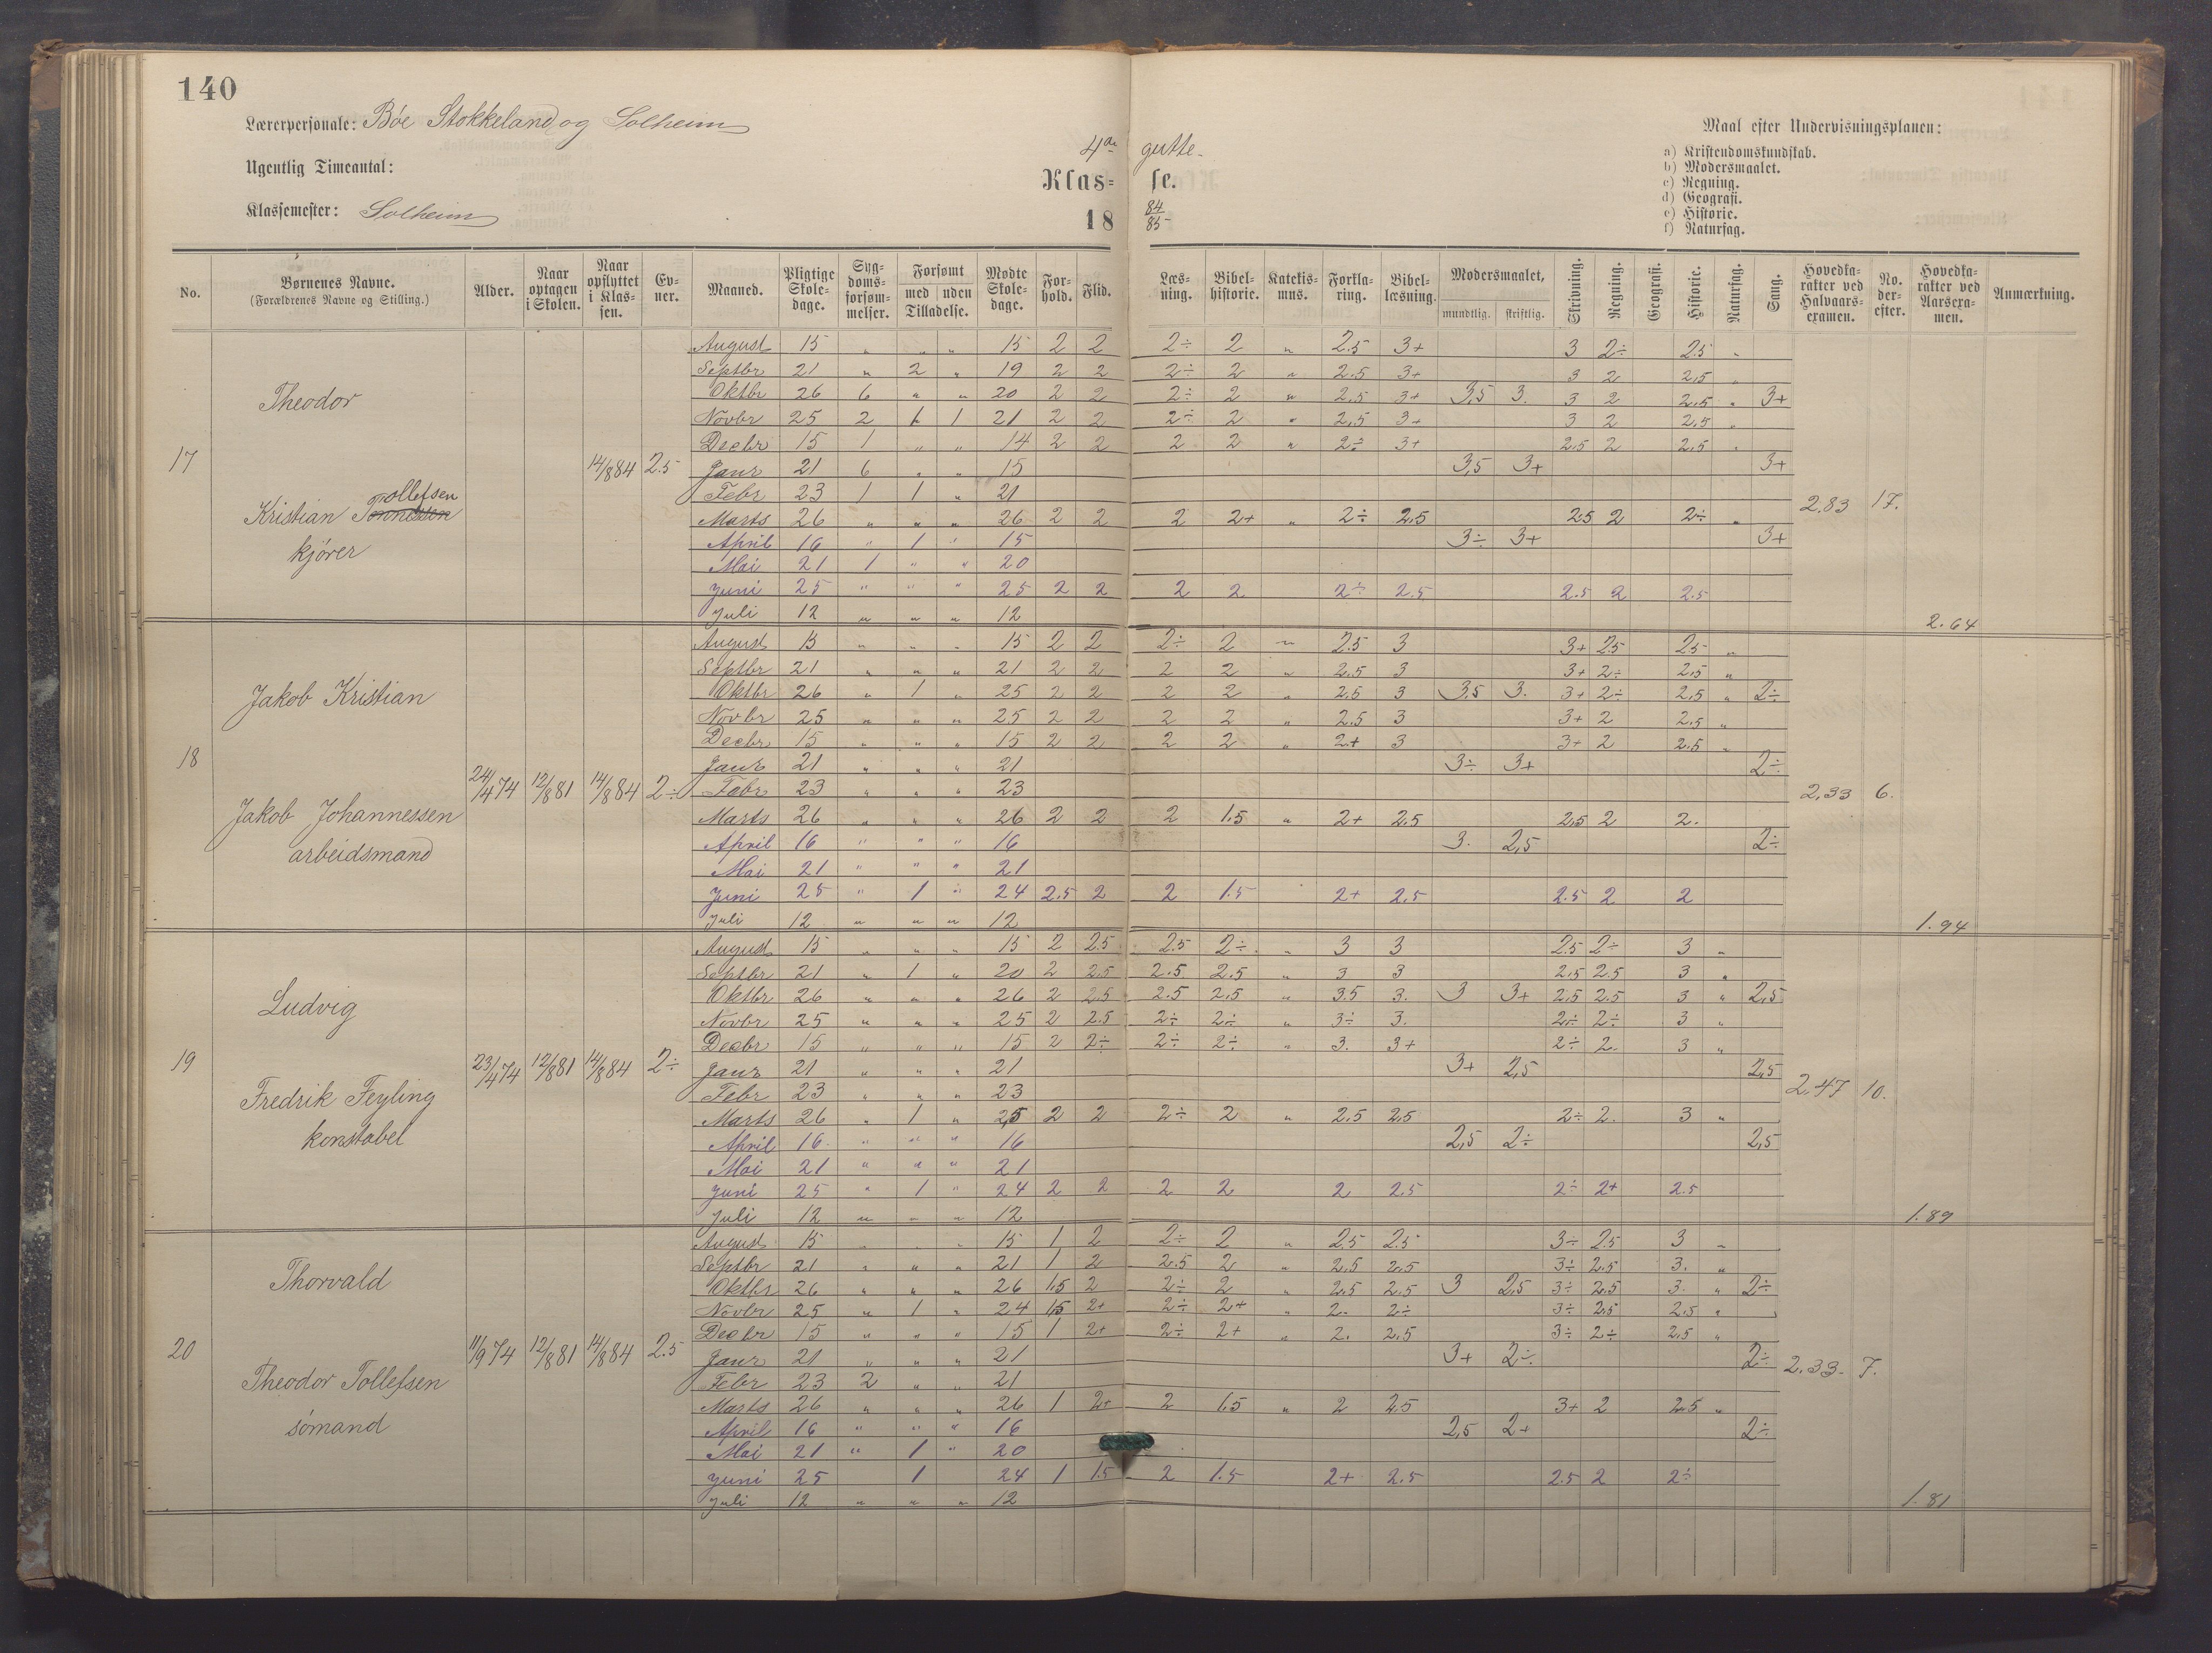 140
Lærerpersonale: Bøe Stokkeland og Solheim
Ugentlig Timeantal:
Klassemester: Solheim
4de gutte-
Klas= se.
18 84/85
Maal efter Undervisningsplanen:
a) Kristendomskundskab.
b) Modersmaalet.
c) Regning.
d) Geografi.
e) Historie.
f) Naturfag.
No. | Børnenes Navne. (Forældrenes Navne og Stilling.) | Alder. | Naar optagen i Skolen. | Naar opflyttet i Klas- sen. | Ev- ner. | Maaned. | Pligtige Skole- dage. | Syg- doms- forsøm- melser. | Forsømt med uden Tilladelse. | Mødte Skole- dage. | For- hold. | Flid. | Læs- ning. | Bibel- historie. | Katekis- mus. | Forkla- ring. | Bibel- læsning. | Modersmaalet, mundtlig. skriftlig. | Skrivning. | Regning. | Geografi. | Historie. | Naturfag. | Sang. | Hovedka- rakter ved Halvaars- examen. | No. der- efter. | Hovedka- rakter ved Aarsexa- men. | Anmærkning.
17 Theodor
Kristian Tønnessen Tollefsen
kjører
14/8 84 2.5
August 15 „ „ „ 15 2 2 2÷ 2 „ 2.5 3+ 3 2÷ 2.5 „
Septbr 21 „ 2 „ 19 2 2 2÷ 2 „ 2.5 3+ 3 2 2.5 „
Oktbr 26 6 „ „ 20 2 2 2÷ 2 „ 2.5 3+ 3,5 3. 3 2 2.5 „ 3+
Novbr 25 2 1 1 21 2 2 2÷ 2 „ 2.5 3+ 3 2 2.5 „
Decbr 15 1 „ „ 14 2 2 2 2 „ 2÷ 3+ 2.5 2 2.5 „
Janr 21 6 „ „ 15 3,5 3+ 3+
Febr 23 1 1 „ 21
Marts 26 „ „ „ 26 2 2 2 2+ „ 2÷ 2.5 2.5 2 2÷ „
April 16 „ 1 „ 15 3÷ 3+ 3+
Mai 21 1 „ „ 20
Juni 25 „ „ „ 25 2 2 2 2 2÷ 2.5 2.5 2 2.5
Juli 12 „ „ „ 12
2.83 17.
2.64
18 Jakob Kristian
Jakob Johannessen
arbeidsmand
24/4 74 12/8 81 14/8 84 2÷
August 15 „ „ „ 15 2 2 2÷ 2 „ 2.5 3 3+ 2.5 2.5 „
Septbr 21 „ „ „ 21 2 2 2 2 „ 2.5 3 3+ 2÷ 2.5 „
Oktbr 26 „ 1 „ 25 2 2 2 2 „ 2.5 3 3.5 3. 3+ 2÷ 2.5 „ 2÷
Novbr 25 „ „ „ 25 2 2 2 2 „ 2.5 3 3+ 2 2.5 „
Decbr 15 „ „ „ 15 2 2 2 2 „ 2+ 3 3+ 2 2.5 „
Janr 21 „ „ „ 21 3÷ 3+ 2÷
Febr 23 „ „ „ 23
Marts 26 „ „ „ 26 2 2 2 1.5 „ 2+ 2.5 2.5 2 2.
April 16 „ „ „ 16 3. 2,5 2÷
Mai 21 „ „ „ 21
Juni 25 „ 1 „ 24 2.5 2 2 1.5 2+ 2.5 2.5 2 2
Juli 12 „ „ „ 12
2,33 6.
1.94
19 Ludvig
Fredrik Feyling
konstabel
23/4 74 12/8 81 14/8 84 2÷
August 15 „ „ „ 15 2 2.5 2.5 2÷ „ 3 3 2.5 2÷ 3 „
Septbr 21 „ 1 „ 20 2 2.5 2.5 2.5 „ 3 3 2.5 2.5 3 „
Oktbr 26 „ „ „ 26 2 2.5 2.5 2.5 „ 3.5 3. 3 3+ 2.5 2.5 3 „ 2,5
Novbr 25 „ „ „ 25 2 2.5 2÷ 2÷ „ 3÷ 3. 2÷ 2÷ 3 „
Decbr 15 „ „ „ 15 2 2÷ 2÷ 2÷ „ 3. 3+ 2÷ 2. 3 „
Janr 21 „ „ „ 21 3+ 2,5 2,5
Febr 23 „ „ „ 23
Marts 26 „ 1 „ 25 2 2 2÷ 2 „ 2.5 2.5 2÷ 2. 3 „
April 16 „ „ „ 16 2,5 2÷ 2,5
Mai 21 „ „ „ 21
Juni 25 „ 1 „ 24 2 2 2 2 2 2.5 2÷ 2+ 2.5
Juli 12 „ „ „ 12
2.47 10.
1.89
20 Thorvald
Theodor Tollefsen
sømand
11/9 74 12/8 81 14/8 84 2.5
August 15 „ „ „ 15 1 2 2÷ 2 „ 2.5 2.5 3÷ 2.5 3 „
Septbr 21 „ „ „ 21 1 2 2.5 2 „ 2.5 2.5 3÷ 2.5 3. „
Oktbr 26 „ „ „ 26 1.5 2 2÷ 2 „ 2.5 2.5 3 2,5 3÷ 2.5 3. „ 2÷
Novbr 25 „ 1 „ 24 1.5 2+ 2÷ 2+ „ 2. 2÷ 3÷ 2.5 2.5 „
Decbr 15 „ „ „ 15 1 2+ 2÷ 2+ „ 2. 2.5 3÷ 2÷ 2.5 „
Janr 21 „ „ „ 21 3+ 2÷ 2÷
Febr 23 2 „ „ 21
Marts 26 „ „ „ 26 1 2+ 2 1.5 „ 2 2.5 3+ 2 2.5 „
April 16 „ „ „ 16 2,5 2+ 2÷
Mai 21 „ 1 „ 20
Juni 25 1 24 1 1.5 2 1.5 2+ 2.5 2.5 2 2÷
Juli 12 „ „ „ 12
2.33. 7.
1.81